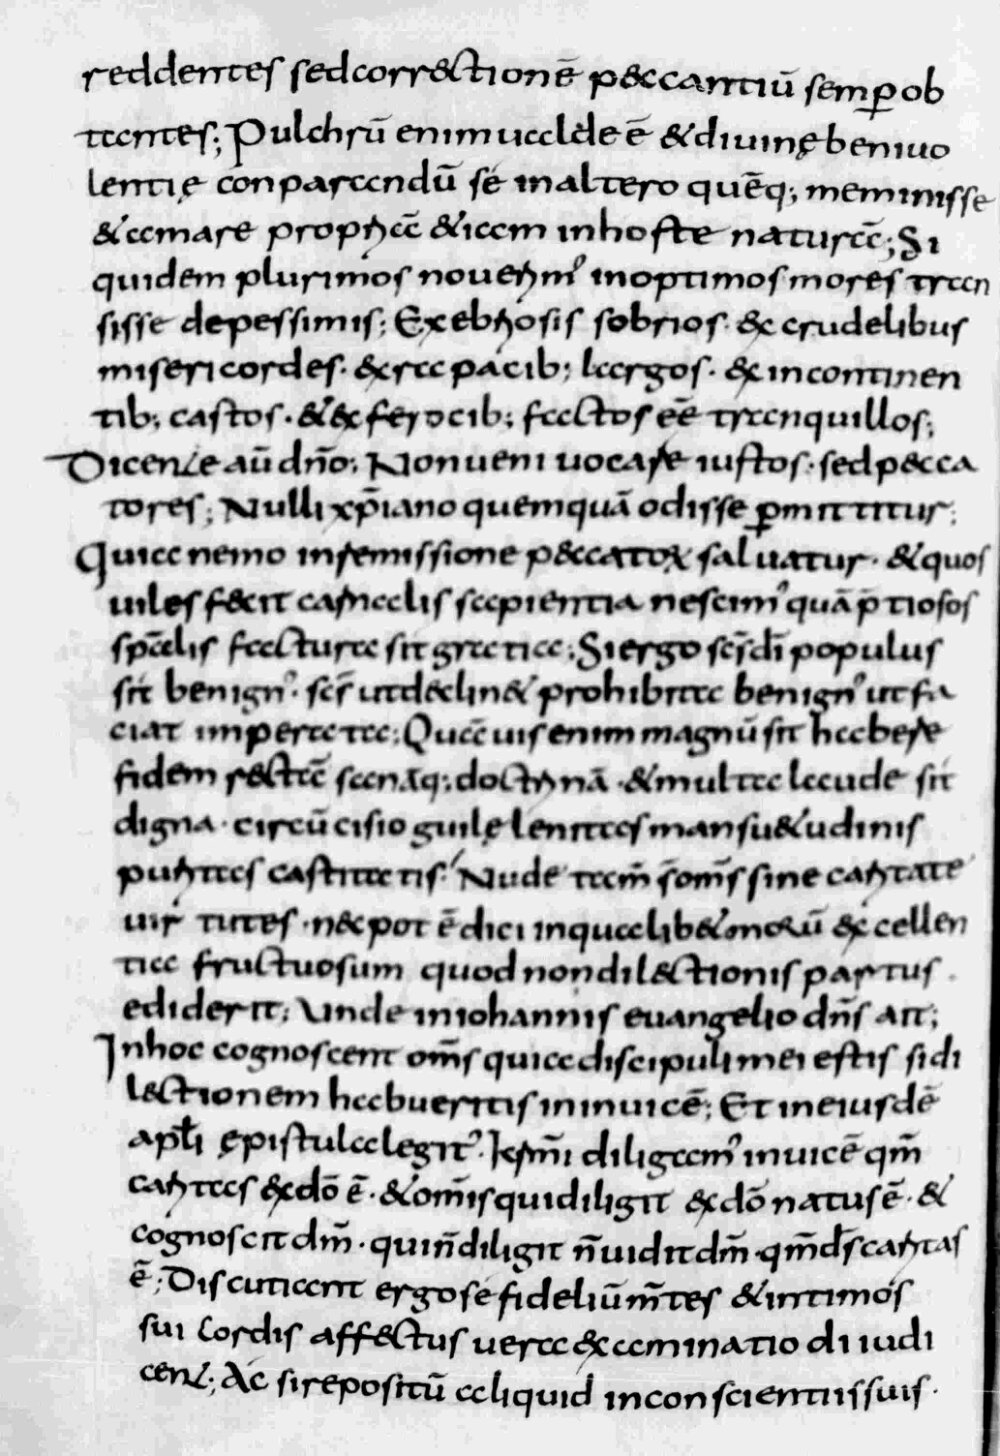 reddentes sed correctionē peccantiū semꝑ ob
tantes; Pulchrū enim ualde ē & diuinę beniuo
lentię conparandū se in altero quēq; meminisse
& amare propriā & iam in hoste naturā; Si
quidem plurimos nouerimꝰ in optimos mores tran
sisse de pessimis; Ex ebriosis sobrios· ex crudelibus
misericordes· ex rapacib; largos· ex incontinen
tib; castos· & ex ferocib; factos eē tranquillos;
Dicente aū dn̄o; Non ueni uocare iustos· sed pecca
tores; Nulli xp̄iano quemquā odisse ꝑmittitur;
Quia nemo in remissione peccatoꝝ saluatur· & quos
uiles fecit carnalis sapientia nescimꝰ quā p̄tiosos
sp̄alis factura sit gratia; Si ergo sc̄s dī populus
sit benignꝰ· sc̄s ut declin& prohibita benignꝰ ut fa
ciat imperata; Quāuis enim magnū sit habere
fidem rectā sanāq; doctrinā· & multa laude sit
digna· circūcisio gulę lenitas mansu&udinis
puritas castitatis· Nudę tam̄ s̄ om̄s sine caritate
uirtutes· nec pot ē dici in qualib& morū excellen
tia fructuosum quod non dilectionis partus
ediderit; Unde in iohannis euangelio dn̄s ait;
In hoc cognoscent om̄s quia discipuli mei estis si di
lectionem habueritis in inuicē; Et in eiusdē
apl̄i ępistula legitꝰ· Kr̄mi diligamꝰ inuicē qm̄
caritas ex dō ē· & om̄is qui diligit ex dō natus ē· &
cognoscit dm̄· qui n̄ diligit n̄ uidit dm̄· qm̄ ds̄ caritas
ē; Discutiant ergo se fideliū m̄tes & intimos
sui cordis affectus uera examinatio diiudi
cent; Ac si repositū aliquid in conscientiis suis·